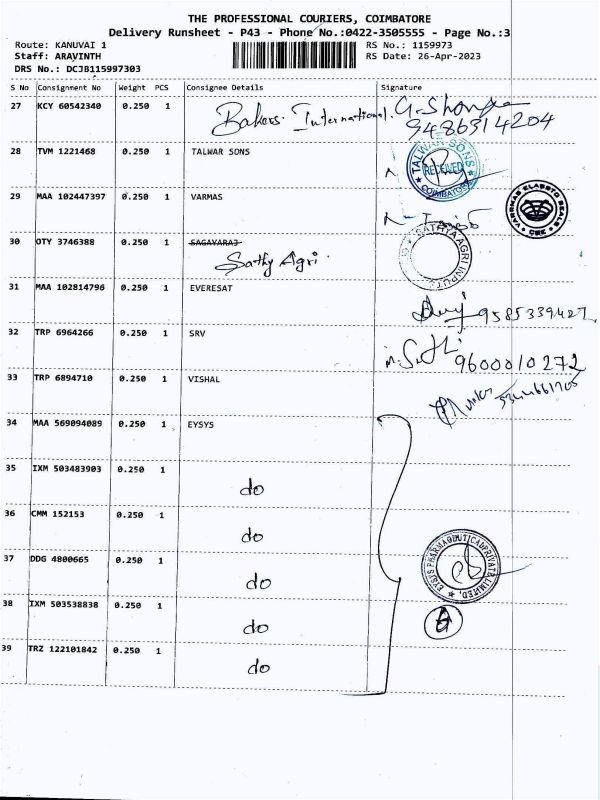 THE PROFESSIONAL COURIERS, COIMBATORE
Delivery Runsheet - P43 - Phone No.:0422-3505555 - Page No.:3
Route: KANUVAI 1 RS No.: 1159973
Staff: ARAVINTH RS Date: 26-Apr-2023
DRS No.: DCJB115997303
S No Consignment No Weight PCS Consignee Details Signature
27 KCY 60542340 0.250 1 Bakers International
9486314204
28 TVM 1221468 0.250 1 TALWAR SONS
TALWAR SONS RECEIVED COIMBATORE
29 MAA 102447397 0.250 1 VARMAS
30 OTY 3746388 0.250 1 SAGAYARAJ
Sathy Agri
31 MAA 102814796 0.250 1 EVERESAT
9585339427
32 TRP 6964266 0.250 1 SRV
9600010272
33 TRP 6894710 0.250 1 VISHAL
34 MAA 569094089 0.250 1 EYSYS
35 IXM 503483903 0.250 1 do
36 CMM 152153 0.250 1 do
37 DDG 4800665 0.250 1 do
38 IXM 503538838 0.250 1 do
39 TRZ 122101842 0.250 1 do